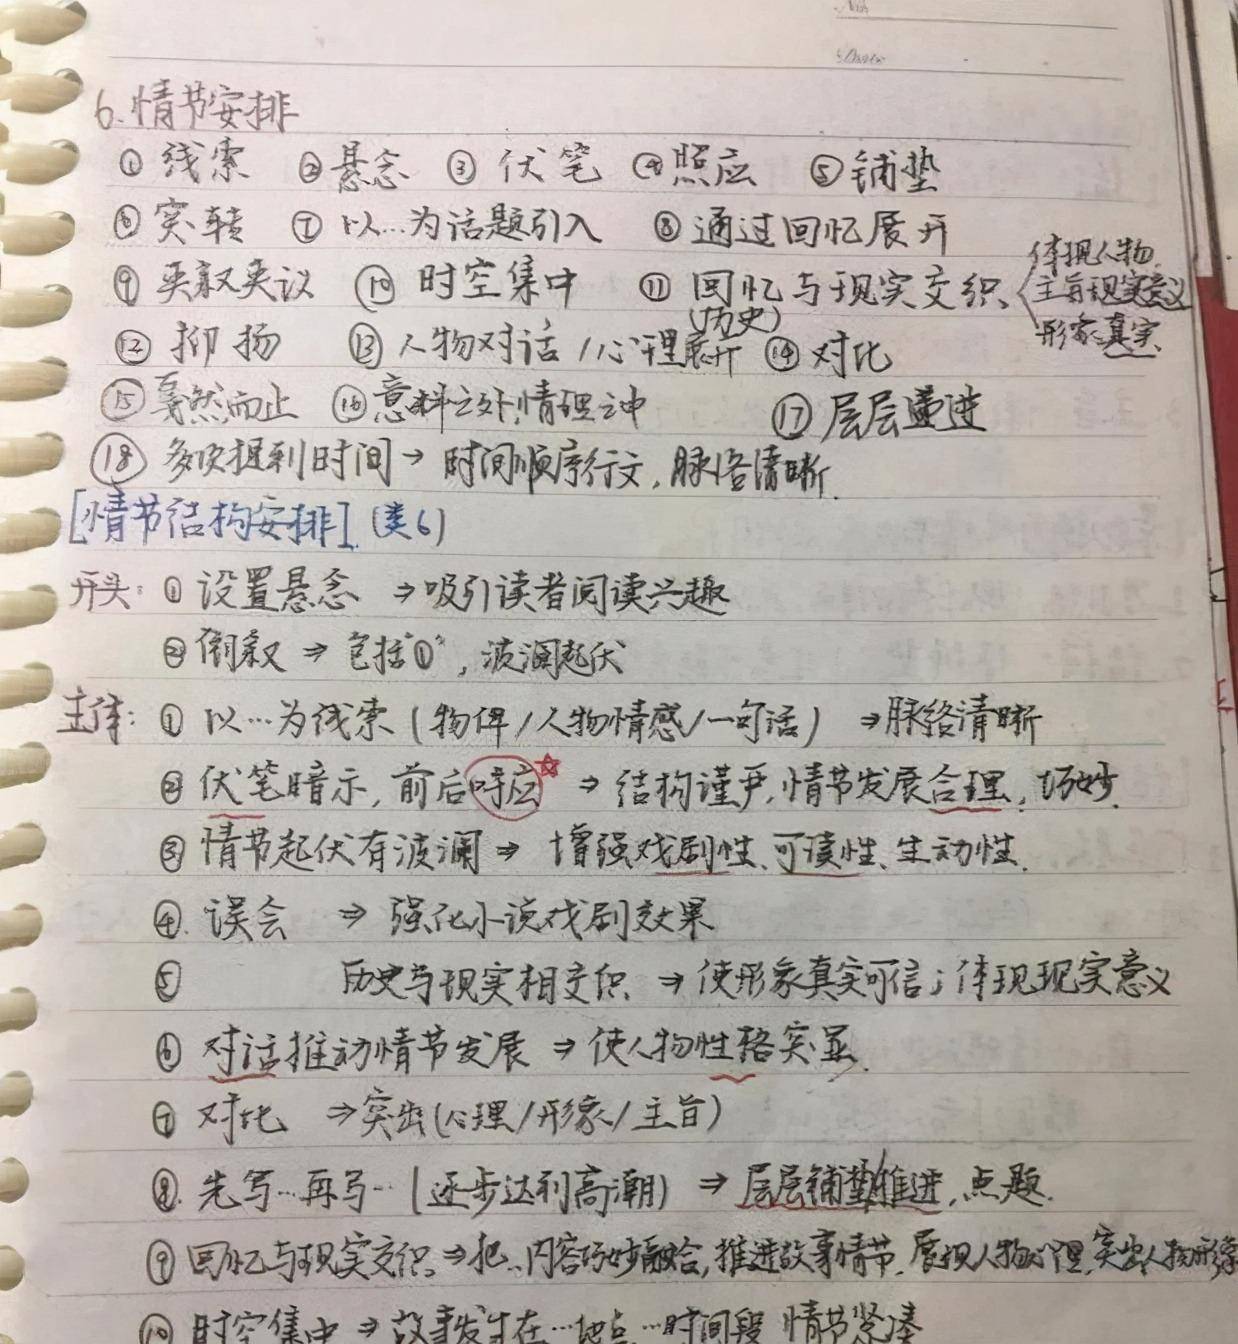 6.情节安排
①线索 ②悬念 ③伏笔 ④照应 ⑤铺垫
⑥突转 ⑦以…为话题引入 ⑧通过回忆展开
⑨夹叙夹议 ⑩时空集中 ⑪回忆与现实交织
(历史)
体现人物
主旨现实意义
形象真实
⑫抑扬 ⑬人物对话/心理展开 ⑭对比
⑮戛然而止 ⑯意料之外,情理之中 ⑰层层递进
⑱多次提到时间→时间顺序行文,脉络清晰.
[情节结构安排](类6)
开头:①设置悬念⇒吸引读者阅读兴趣
②倒叙⇒包括"①",波澜起伏
主体:①以…为线索(物件/人物情感/一句话)⇒脉络清晰
②伏笔暗示,前后呼应☆⇒结构谨严,情节发展合理,巧妙.
③情节起伏有波澜⇒增强戏剧性、可读性、生动性.
④.误会⇒强化小说戏剧效果
⑤历史与现实相交织⇒使形象真实可信;体现现实意义
⑥对话推动情节发展⇒使人物性格突显.
⑦对比⇒突出(心理/形象/主旨)
⑧.先写…再写…(逐步达到高潮)⇒层层铺垫/推进,点题.
⑨回忆与现实交织⇒把..内容巧妙融合,推进故事情节,展现人物心理,突出人物形象
⑩时空集中⇒故事发生在…地点…时间段 情节紧凑